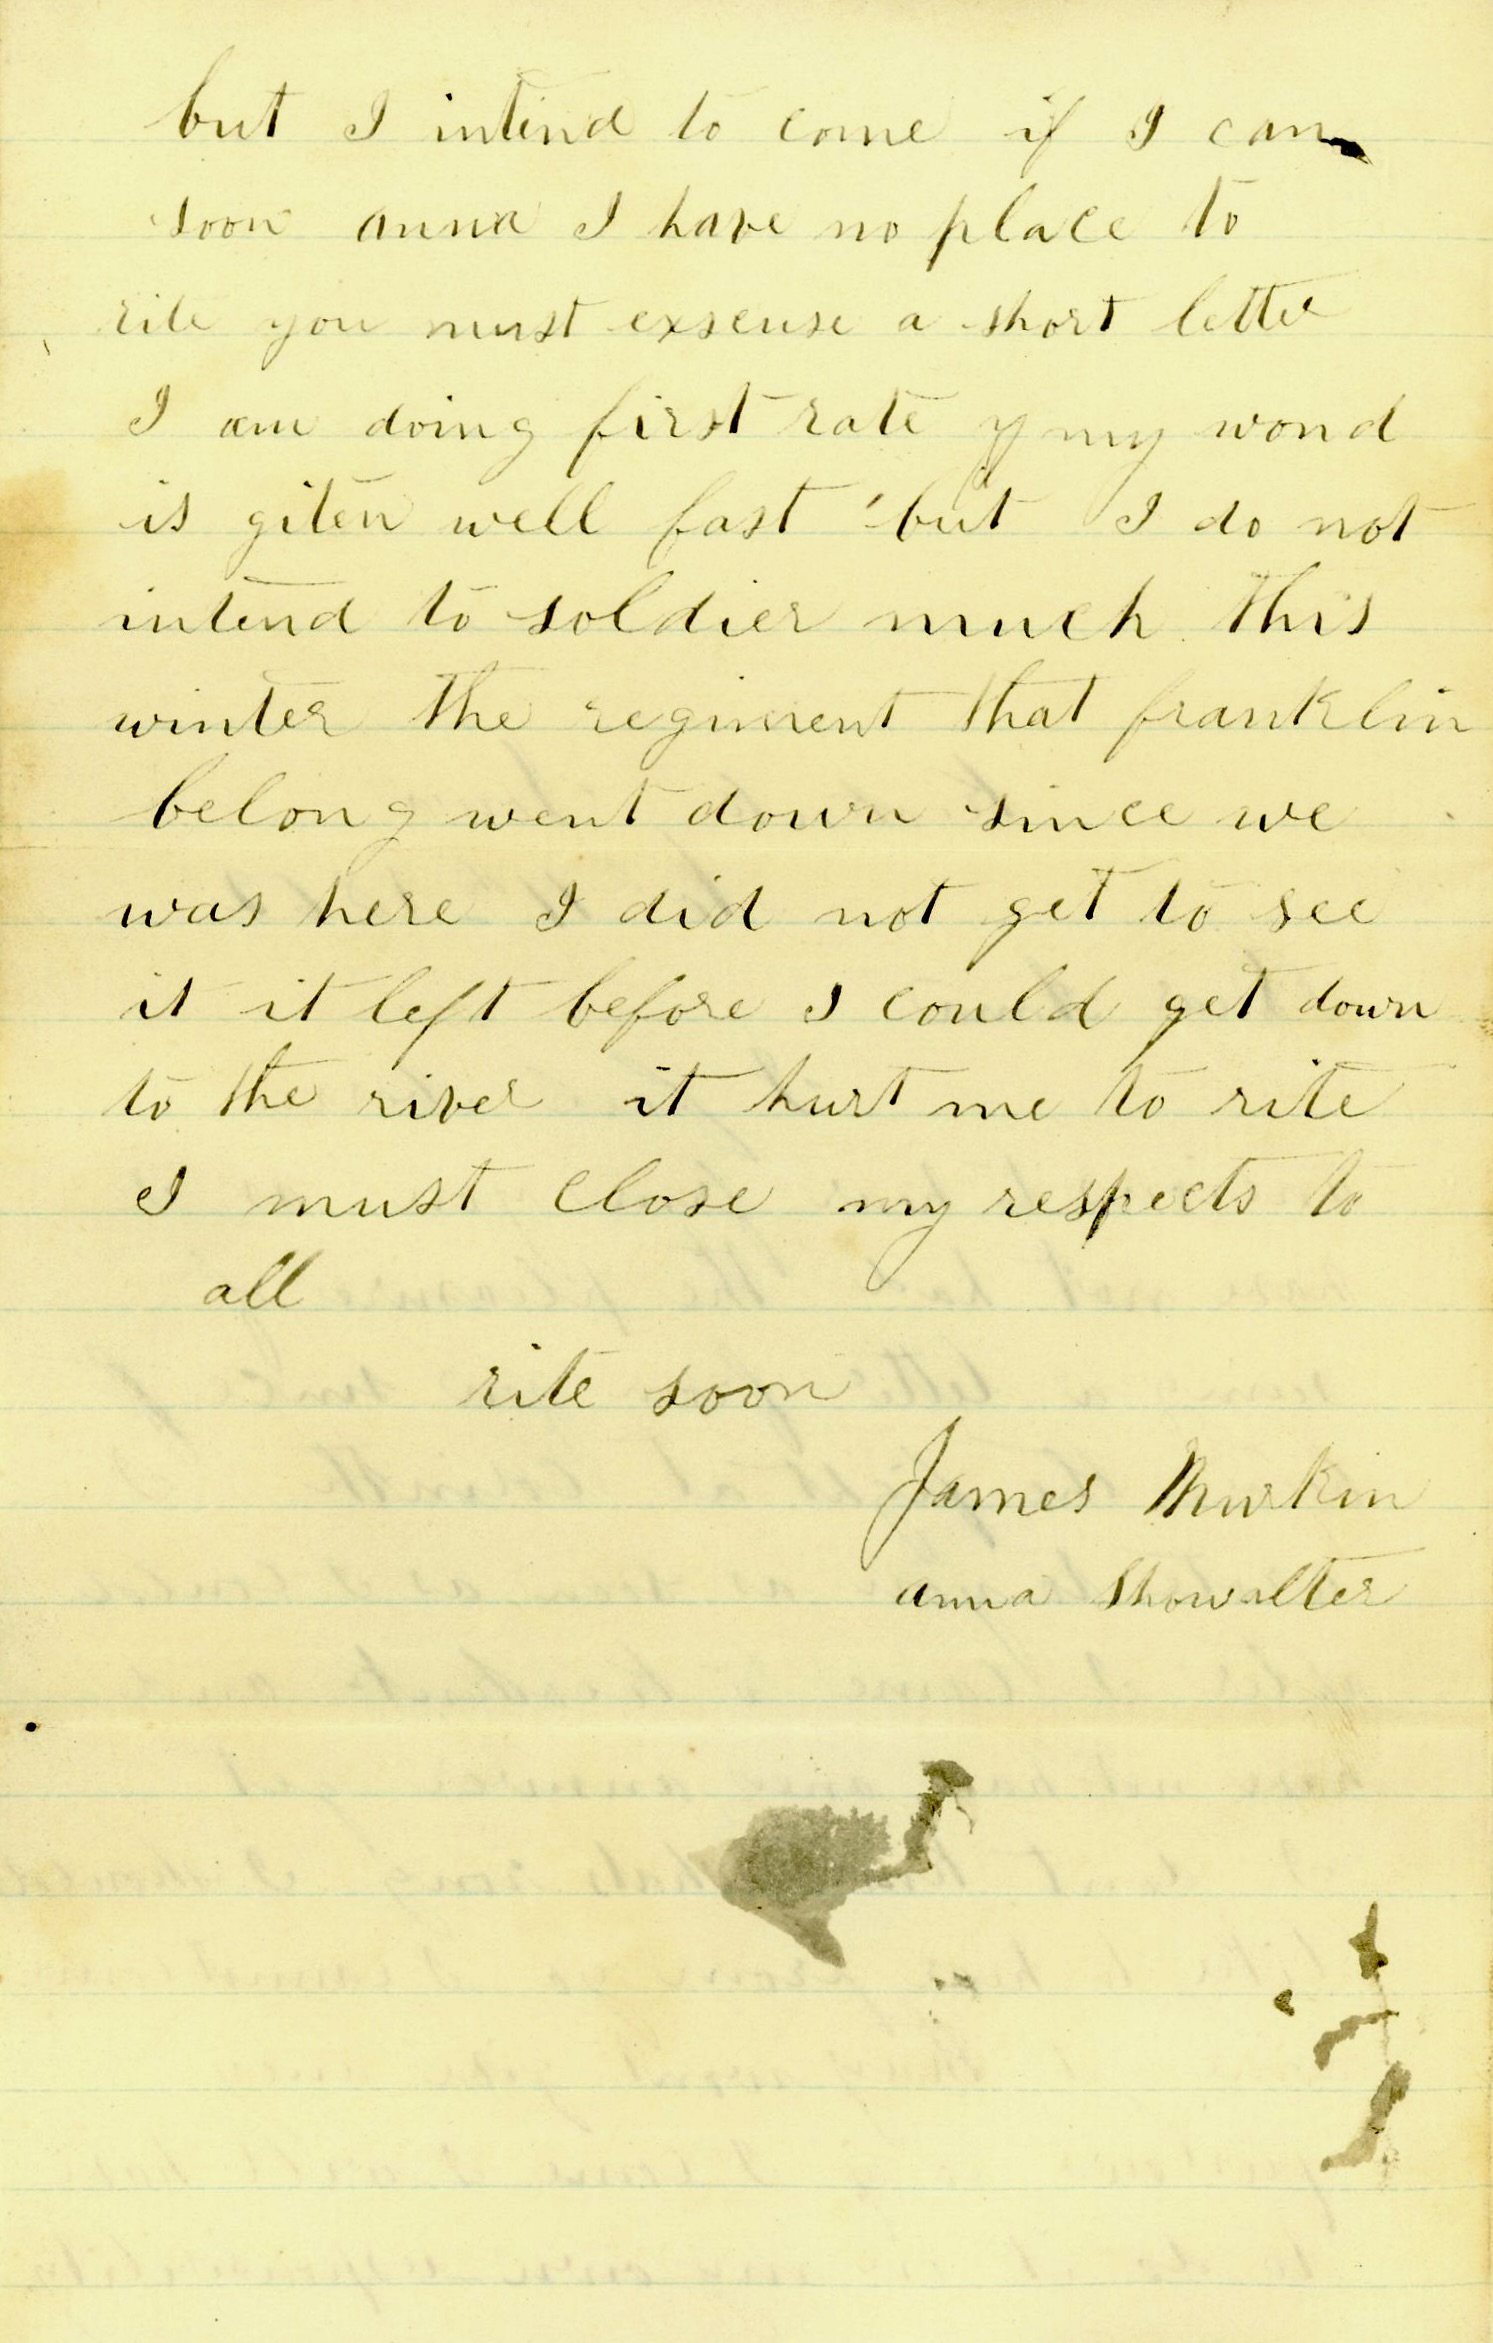 but I intend to come if I can
soon anna I have no place to
rite you must exscuse a short letter
I am doing first rate y my wond
is giten well fast but I do not
intend to soldier much this
winter the regiment that franklin
belong went down since we
was here I did not get to see
it it left before I could get down
to the river it hurt me to rite
I must close my respects to
all
rite soon
James Murkin
anna Showalter